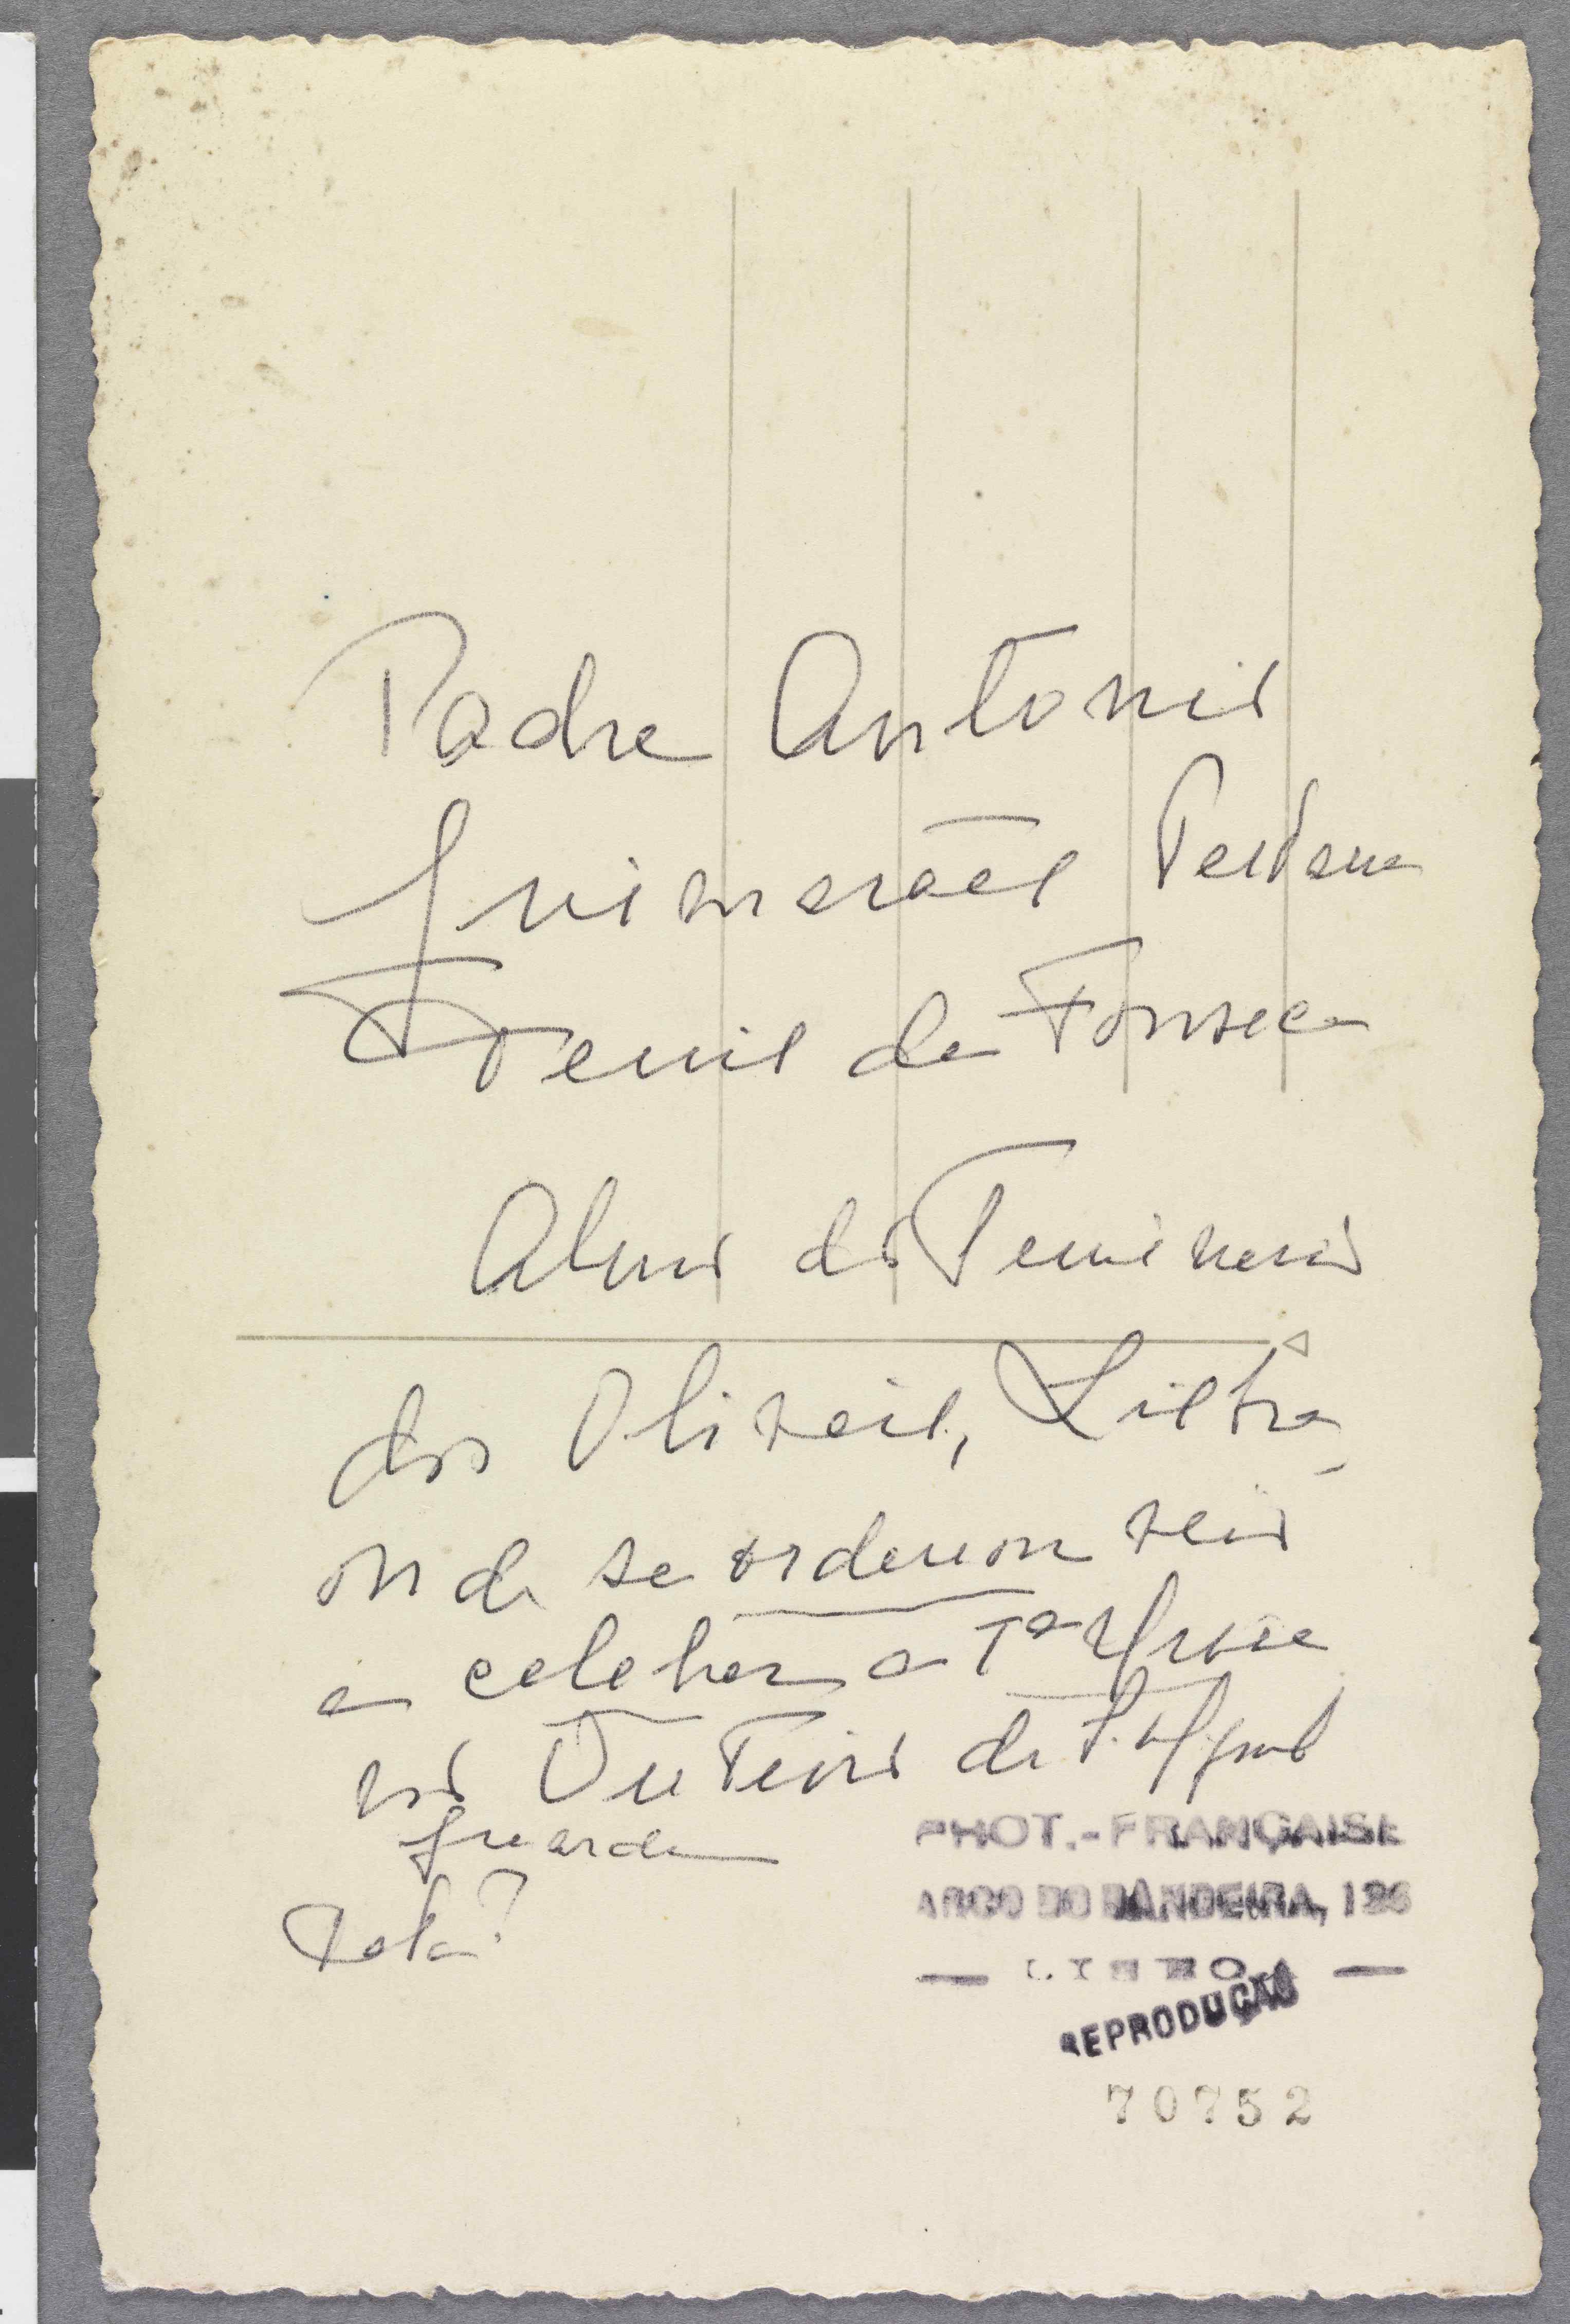 Padre Antonio
Guimarães Pestana
da Fonseca
Aluno do Seminario
dos Olivais, Lisboa,
onde se ordenou veio
a celebrar a 1ª Missa
no Outeiro de S. Miguel
Guarda
Data?
PHOT.-FRANÇAISE
ARCO DO BANDEIRA, 126
— LISBOA —
REPRODUÇÃO
70752